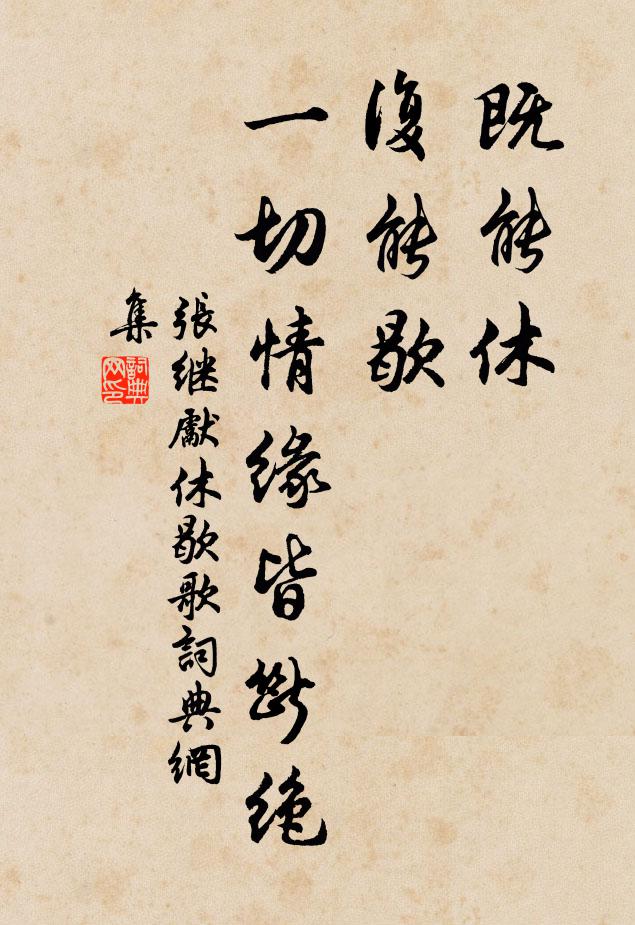 既能休
復能歇
一切情緣皆斷絶
張继獻休歇歌詞典網
集
詞典
网印